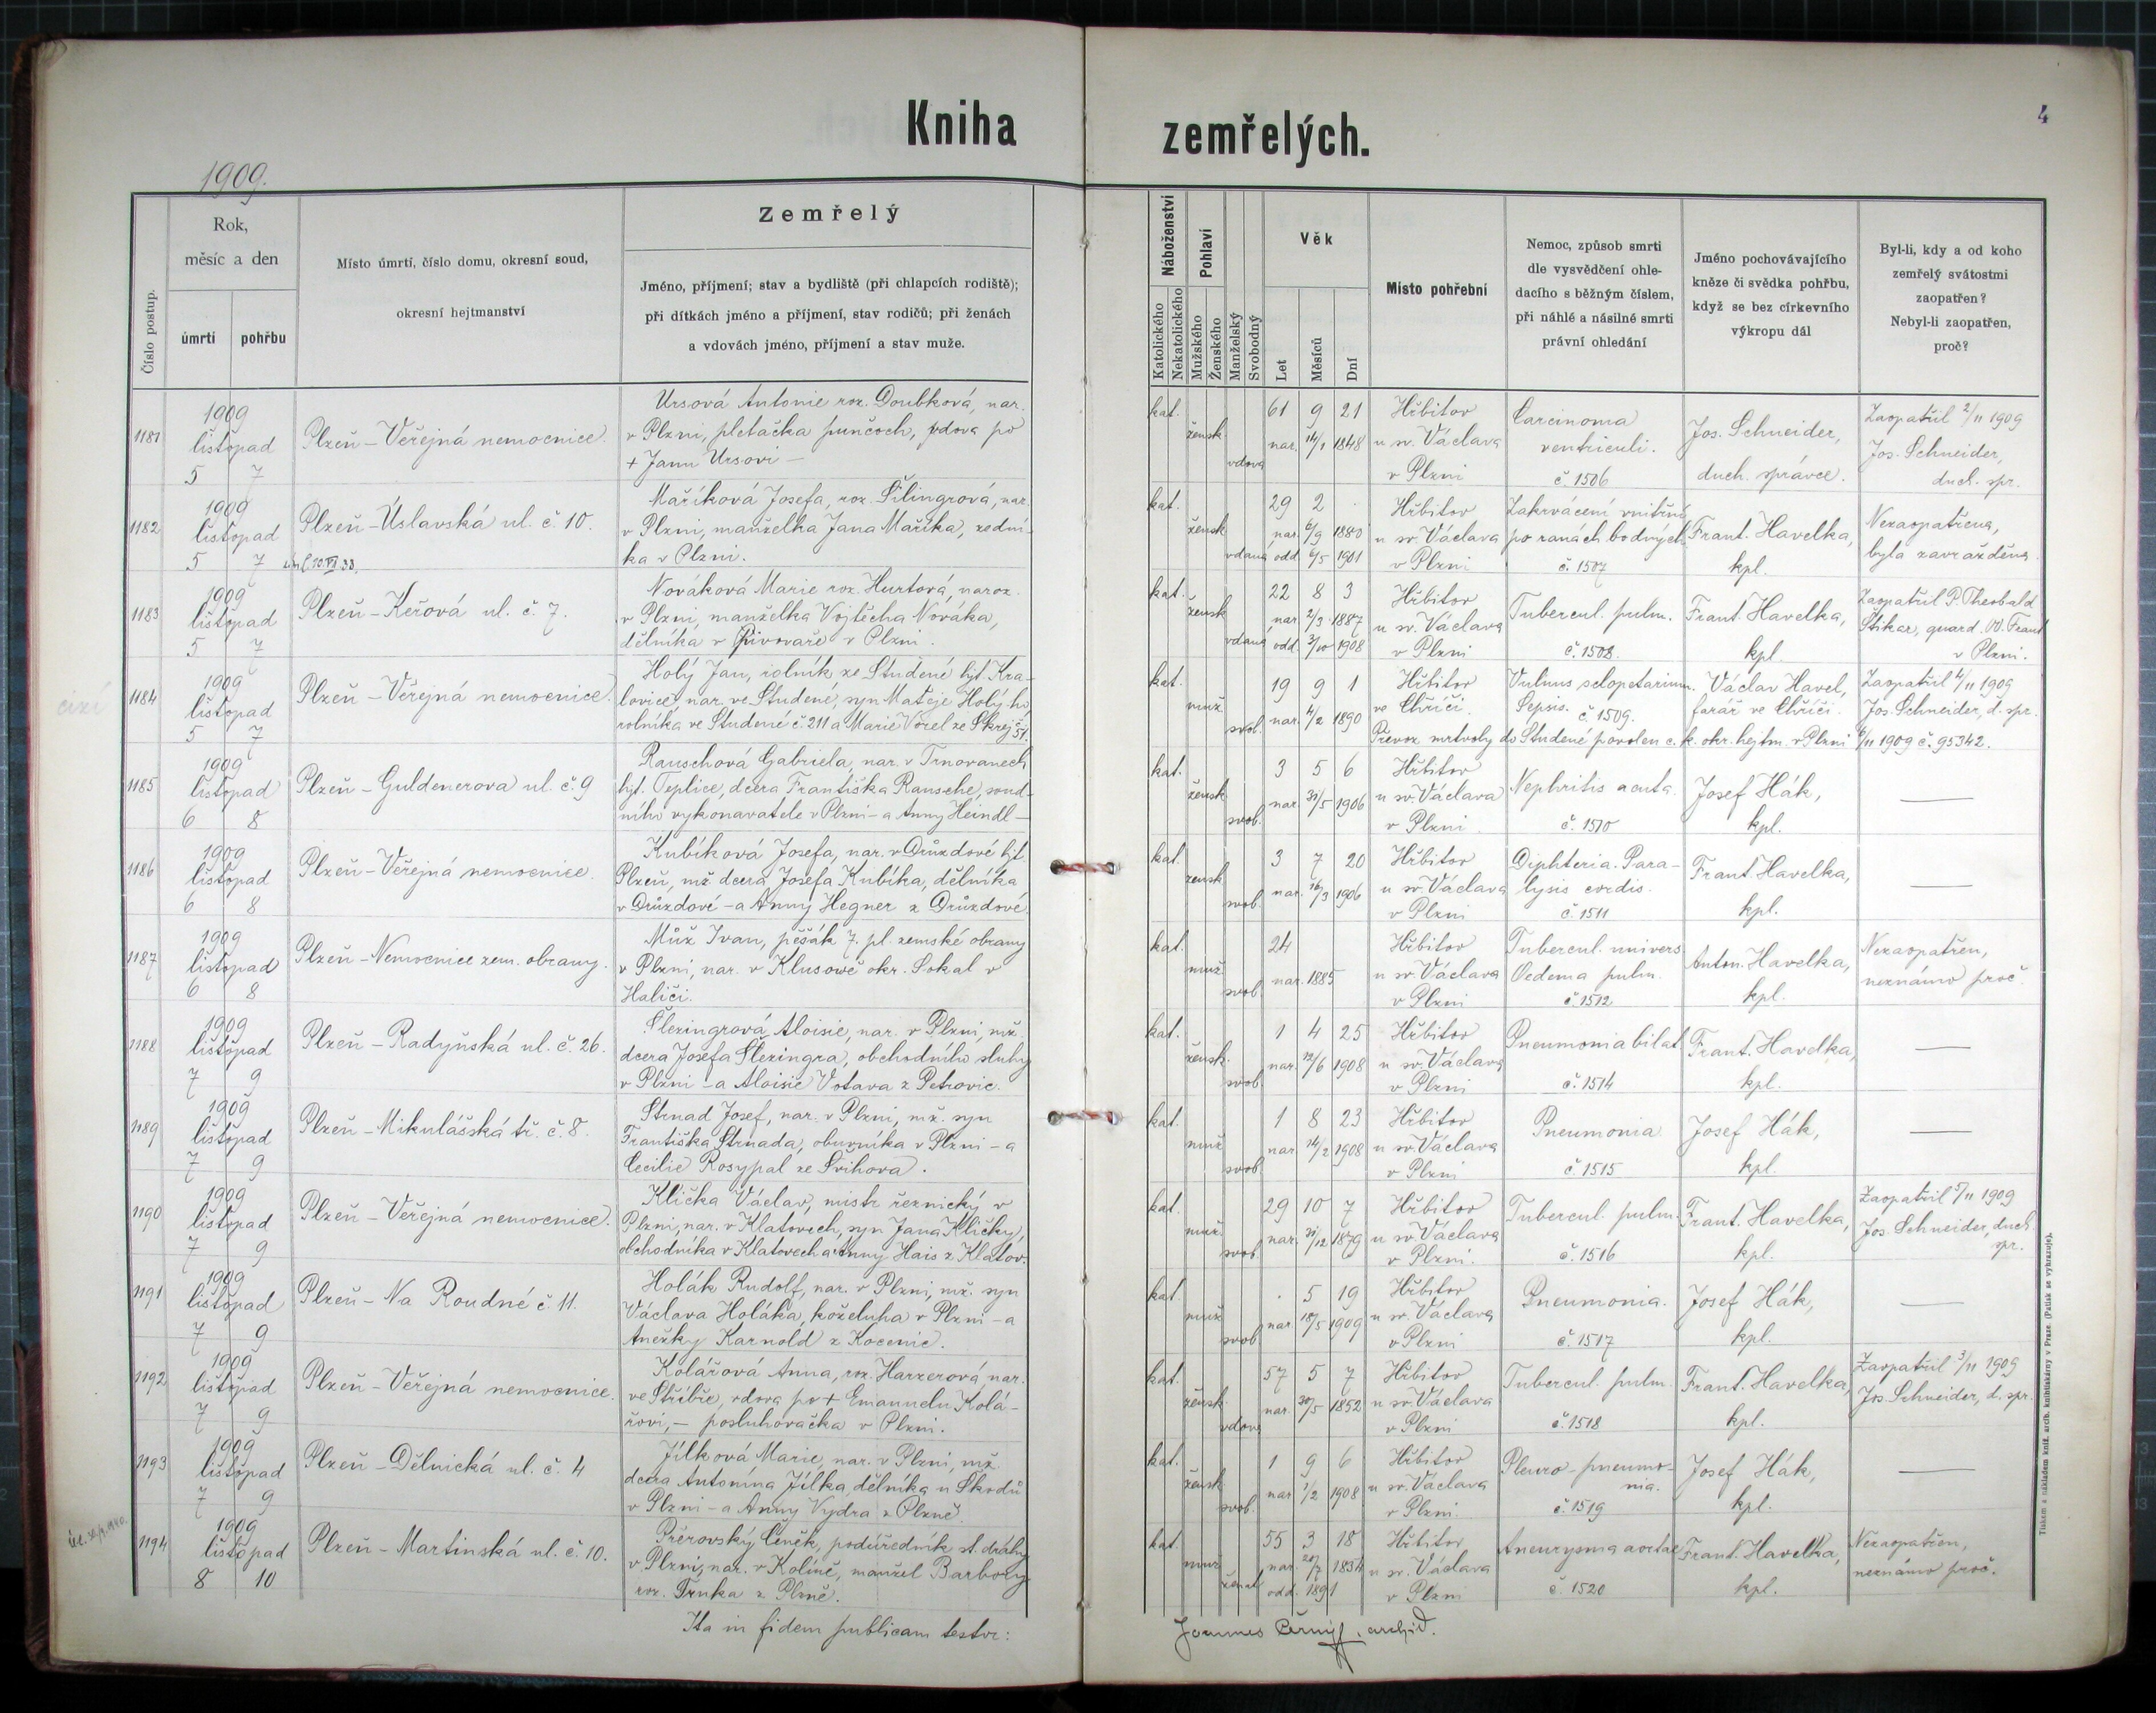 Kniha zemřelých.
4
1909.
Číslo postup.
Rok,
měsíc a den
úmrtí
pohřbu
Místo úmrtí, číslo domu, okresní soud,
okresní hejtmanství
Zemřelý
Jméno, příjmení; stav a bydliště (při chlapcích rodiště);
při dítkách jméno a příjmení, stav rodičů; při ženách
a vdovách jméno, příjmení a stav muže.
Náboženství
Katolického
Nekatolického
Pohlaví
Mužského
Ženského
Manželský
Svobodný
Věk
Let
Měsíců
Dní
Místo pohřební
Nemoc, způsob smrti
dle vysvědčení ohle-
dacího s běžným číslem,
při náhlé a násilné smrti
právní ohledání
Jméno pochovávajícího
kněze či svědka pohřbu,
když se bez církevního
výkropu dál
Byl-li, kdy a od koho
zemřelý svátostmi
zaopatřen?
Nebyl-li zaopatřen,
proč?
1181
1909
listopad
5 7
Plzeň - Veřejná nemocnice.
Ursová Antonie roz. Doubková, nar.
v Plzni, pletačka punčoch, vdova po
+ Janu Ursovi -
kat.
žensk
vdova
61 9 21
nar. 14/1 1848
Hřbitov
u sv. Václava
v Plzni
Carcinoma
ventriculi.
č. 1506
Jos. Schneider,
duch. správce.
Zaopatřil 2/11 1909
Jos. Schneider,
duch. spr.
1182
1909
listopad
5 7
Plzeň - Úslavská ul. č. 10.
Maříková Josefa, roz. Šilingrová, nar.
v Plzni, manželka Jana Maříka, zední-
ka v Plzni.
kat.
žensk
vdaná
29 2 .
nar. 6/9 1880
odd. 6/5 1901
Hřbitov
u sv. Václava
v Plzni
Zakrvácení vnitřní
po ranách bodných
č. 1507
Frant. Havelka,
kpl.
Nezaopatřena,
byla zavražděna.
1183
1909
listopad
5 7
Plzeň - Keřová ul. č. 7.
Nováková Marie roz. Hurtová, naroz.
v Plzni, manželka Vojtěcha Nováka,
dělníka v Pivovaře v Plzni.
kat.
žensk
vdaná
22 8 3
nar. 2/3 1887
odd. 3/10 1908
Hřbitov
u sv. Václava
v Plzni
Tubercul. pulm.
č. 1508.
Frant. Havelka,
kpl.
Zaopatřil P. Theobald
Štikar, quard. OO. Frant
v Plzni.
cizí
1184
1909
listopad
5 7
Plzeň - Veřejná nemocnice.
Holý Jan, rolník ze Studené hjt. Kra-
lovice, nar. ve Studené, syn Matěje Holého,
rolníka ve Studené č. 211 a Marie Vorel ze Skrej č. 51.
kat.
muž.
svob.
19 9 1
nar. 4/2 1890
Hřbitov
ve Chříči.
Vulnus sclopetarium.
Sepsis. č. 1509.
Václav Havel,
farář ve Chříči.
Zaopatřil 4/11 1909
Jos. Schneider, d. spr.
Převoz mrtvoly do Studené povolen c. k. okr. hejtm. v Plzni 6/11 1909 č. 95342.
1185
1909
listopad
6 8
Plzeň - Guldenerova ul. č. 9
Rauschová Gabriela, nar. v Trnovanech
hjt. Teplice, dcera Františka Rausche, soud-
ního vykonavatele v Plzni - a Anny Heindl -
kat.
žensk
svob.
3 5 6
nar. 31/5 1906
Hřbitov
u sv. Václava
v Plzni.
Nephritis acuta.
č. 1510
Josef Hák,
kpl.
—
1186
1909
listopad
6 8
Plzeň - Veřejná nemocnice.
Kubíková Josefa, nar. v Drůzdové hjt.
Plzeň, mž dcera Josefa Kubíka, dělníka
v Drůzdové - a Anny Hegner z Drůzdové.
kat.
žensk
svob.
3 7 20
nar. 16/3 1906
Hřbitov
u sv. Václava
v Plzni
Diphteria. Para-
lysis cordis.
č. 1511
Frant. Havelka,
kpl.
—
1187
1909
listopad
6 8
Plzeň - Nemocnice zem. obrany.
Můž Ivan, pěšák 7. pl. zemské obrany
v Plzni, nar. v Klusowě okr. Sokal v
Haliči.
kat.
muž
svob.
24
nar. 1885
Hřbitov
u sv. Václava
v Plzni
Tubercul. univers
Oedema pulm.
č. 1512
Anton. Havelka,
kpl.
Nezaopatřen,
neznámo proč.
1188
1909
listopad
7 9
Plzeň - Radyňská ul. č. 26.
Šlezingrová Aloisie, nar. v Plzni, mž.
dcera Josefa Šlezingra, obchodního sluhy
v Plzni - a Aloisie Votava z Petrovic.
kat.
žensk.
svob.
1 4 25
nar. 12/6 1908
Hřbitov
u sv. Václava
v Plzni
Pneumonia bilat
č. 1514
Frant. Havelka,
kpl.
—
1189
1909
listopad
7 9
Plzeň - Mikulášská tř. č. 8.
Strnad Josef, nar. v Plzni, mž. syn
Františka Strnada, obuvníka v Plzni - a
Cecilie Rosypal ze Švihova.
kat.
muž
svob
1 8 23
nar. 14/2 1908
Hřbitov
u sv. Václava
v Plzni
Pneumonia
č. 1515
Josef Hák,
kpl.
—
1190
1909
listopad
7 9
Plzeň - Veřejná nemocnice.
Klička Václav, mistr řeznický v
Plzni, nar. v Klatovech, syn Jana Kličky,
obchodníka v Klatovech a Anny Hais z Klatov.
kat.
muž.
svob
29 10 7
nar. 31/12 1879
Hřbitov
u sv. Václava
v Plzni.
Tubercul. pulm.
č. 1516
Frant. Havelka,
kpl.
Zaopatřil 5/11 1909
Jos. Schneider, duch.
spr.
1191
1909
listopad
7 9
Plzeň - Na Roudné č. 11.
Holák Rudolf, nar. v Plzni, mž. syn
Václava Holáka, koželuha v Plzni - a
Anežky Karnold z Kocenic.
kat.
muž
svob
. 5 19
nar. 18/5 1909
Hřbitov
u sv. Václava
v Plzni
Pneumonia.
č. 1517
Josef Hák,
kpl.
—
1192
1909
listopad
7 9
Plzeň - Veřejná nemocnice.
Kolářová Anna, roz. Harzerová, nar.
ve Stříbře, vdova po + Emanuelu Kolá-
řovi, - posluhovačka v Plzni.
kat.
žensk.
vdova
57 5 7
nar. 30/5 1852
Hřbitov
u sv. Václava
v Plzni
Tubercul. pulm.
č. 1518
Frant. Havelka,
kpl.
Zaopatřil 3/11 1909
Jos. Schneider, d. spr.
1193
1909
listopad
7 9
Plzeň - Dělnická ul. č. 4
Jílková Marie, nar. v Plzni, mž.
dcera Antonína Jílka, dělníka u Škodů
v Plzni - a Anny Vydra z Plzně.
kat.
žensk
svob.
1 9 6
nar. 1/2 1908
Hřbitov
u sv. Václava
v Plzni.
Pleuro-pneumo-
nia.
č. 1519
Josef Hák,
kpl.
—
1194
1909
listopad
8 10
Plzeň - Martinská ul. č. 10.
Přerovský Čeněk, podúředník st. dráhy
v Plzni, nar. v Kolíně, manžel Barbory
roz. Trnka z Plzně.
kat.
muž
ženat
55 3 18
nar. 20/7 1854
odd. 1891
Hřbitov
u sv. Václava
v Plzni
Aneurysma aortae
č. 1520
Frant. Havelka,
kpl.
Nezaopatřen,
neznámo proč.
Ita in fidem publicam testor:
Joannes Černý, archid.
Tiskem a nákladem kníž. arcib. knihtiskárny v Praze. (Patisk se vyhrazuje).